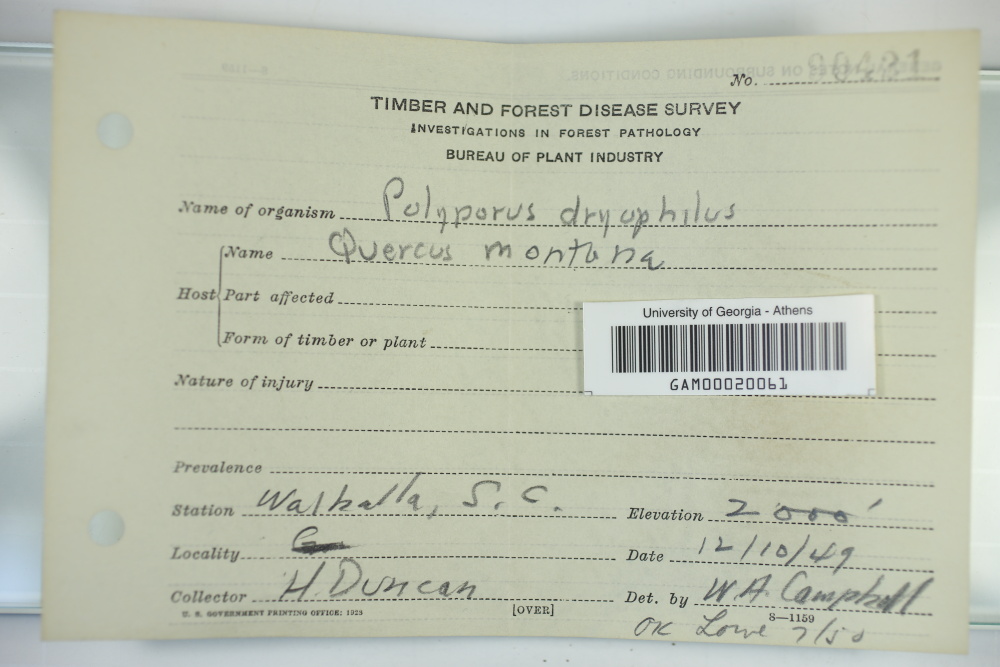 No. 90421
TIMBER AND FOREST DISEASE SURVEY
INVESTIGATIONS IN FOREST PATHOLOGY
BUREAU OF PLANT INDUSTRY
Name of organism Polyporus dryophilus
Host Name Quercus montana
Part affected
Form of timber or plant
University of Georgia - Athens
GAM00020061
Nature of injury
Prevalence
Station Walhalla, S.C. Elevation 2000'
Locality Date 12/10/49
Collector H. Duncan Det. by W.A. Campbell
U. S. GOVERNMENT PRINTING OFFICE: 1923 [OVER] 8—1159
OK Lowe 7/50